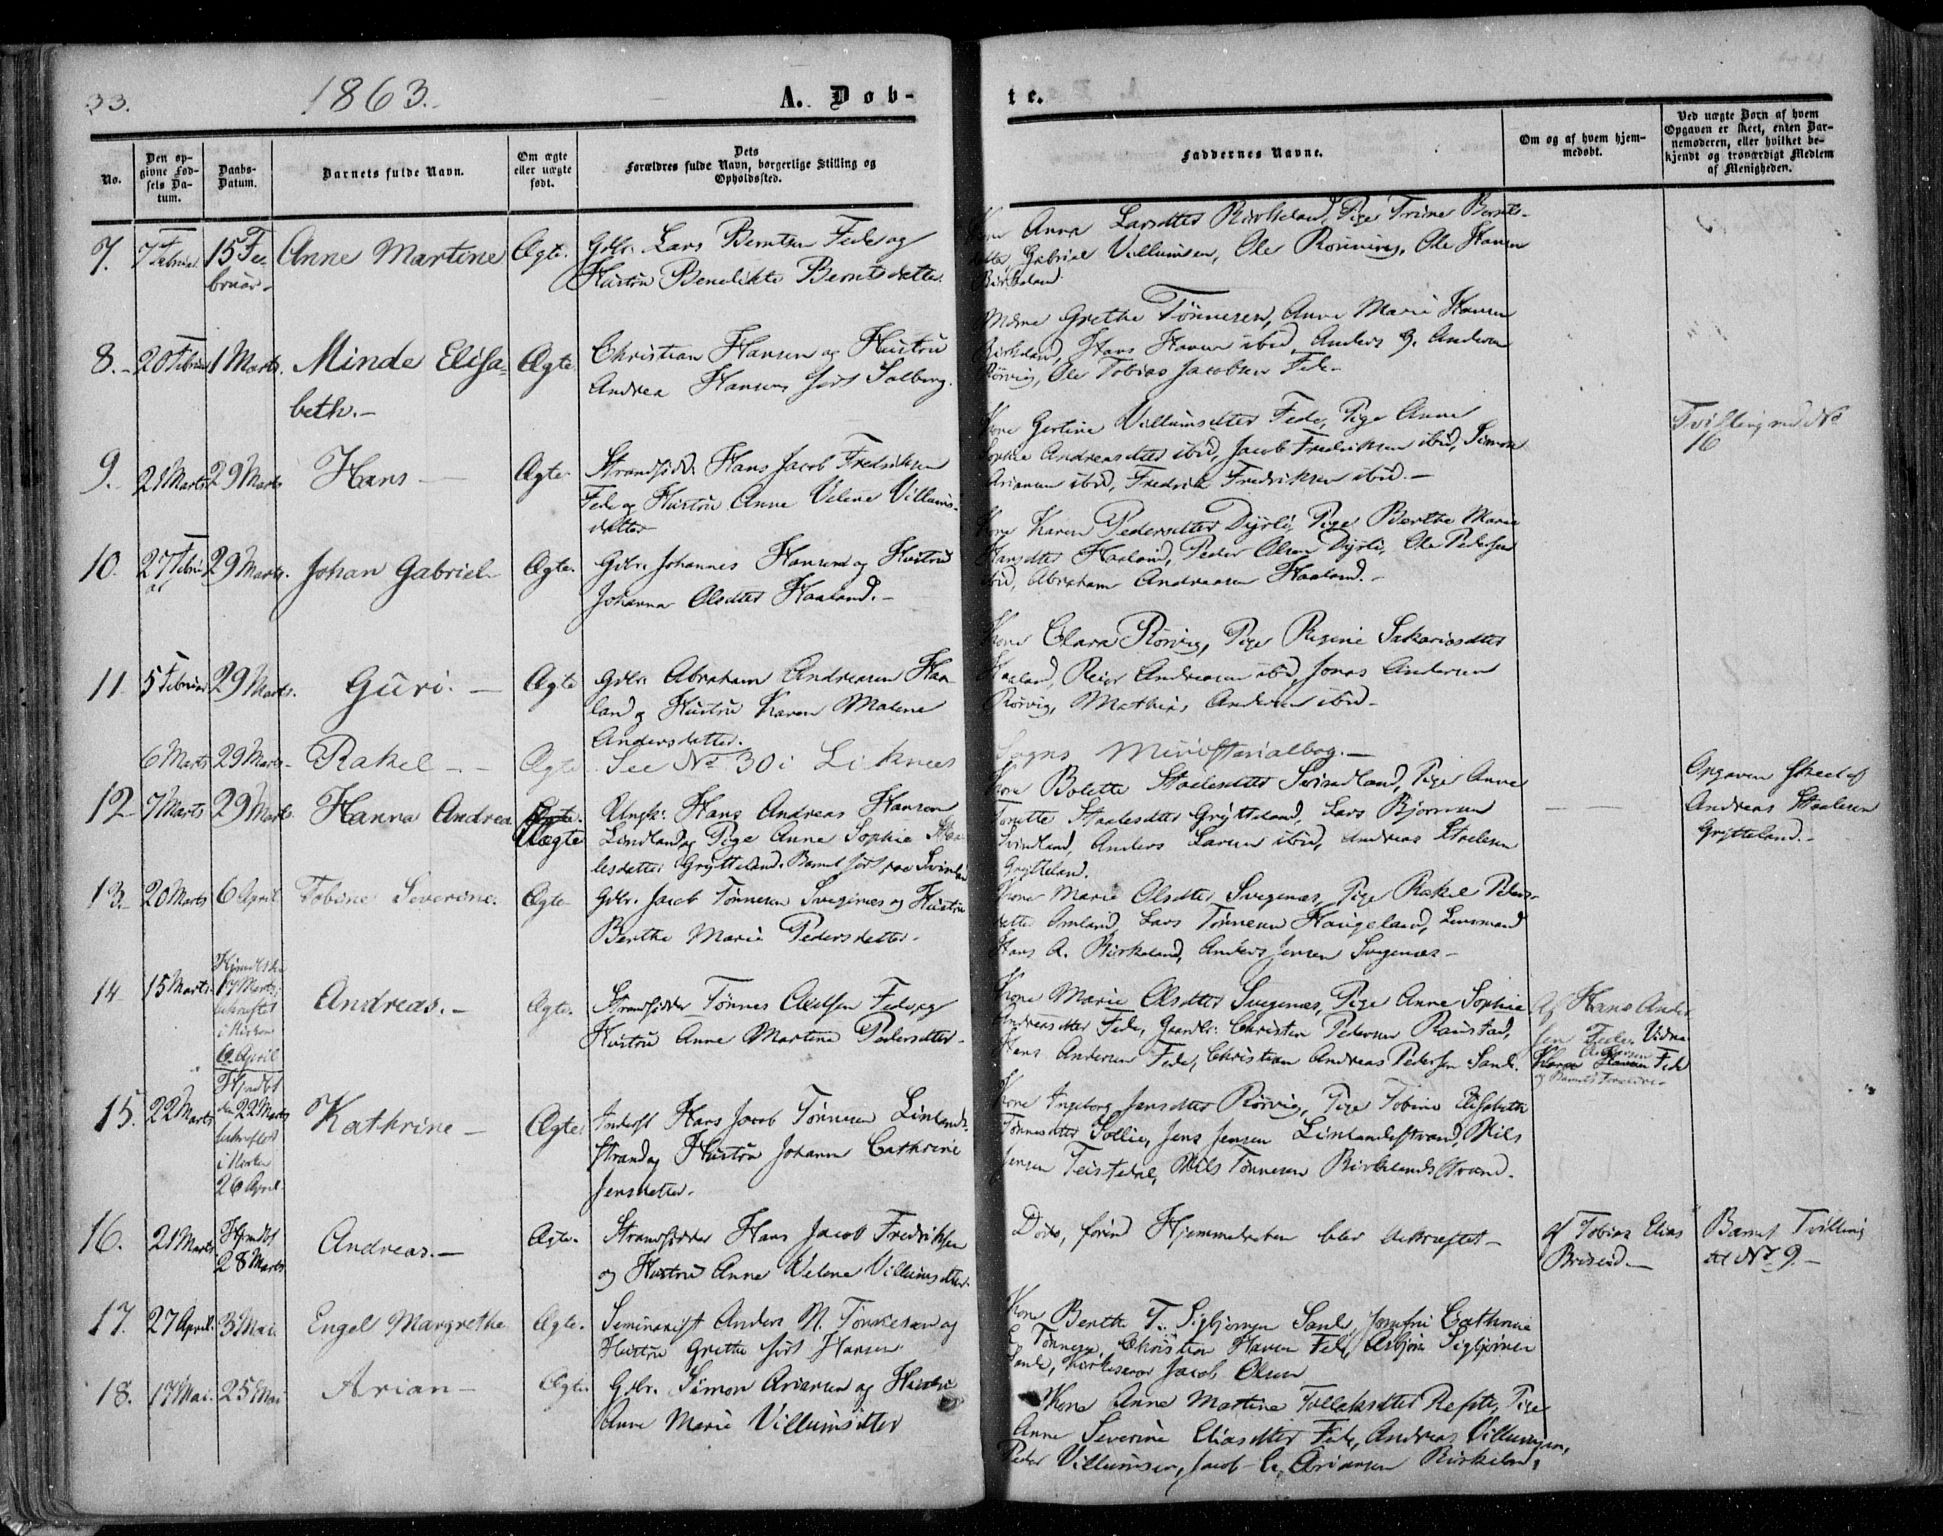 33.
1863.
A. Døb-
te.
No.
Den op-
givne Fød-
sels Da-
tum.
Daabs-
Datum.
Barnets fulde Navn.
Om ægte
eller uægte
født.
Dets
Forældres fulde Navn, borgerlige Stilling og
Opholdssted.
Faddernes Navne.
Om og af hvem hjem-
medøbt.
Ved uægte Børn af hvem
Opgaven er skeet, enten Bar-
nemoderen, eller hvilket be-
kjendt og troværdigt Medlem
af Menigheden.
7. 7 Februar 15 Fe-
bruar.
Anne Martine
Ægte.
Gdbr. Lars Berntsen Fede og
Hustru Benedikte Berntsdatter
Kone Anna Larsdtter Birkeland, Pige Trine Bernts-
datter, Gabriel Villumsen, Ole Rønning, Ole Hansen
Birkeland
8. 20 Februar 1 Marts.
Minde Elisa-
beth.
Ægte.
Christian Hansen og Hustru
Andrea Hansen født Salberg.
Grethe Tønnesen, Anne Marie Hansen
Birkeland, Hans Hansen ibid, Anders G. Andersen
Rørvig, Ole Tobias Jacobsen Fede
9. 21 Marts 29 Marts
Hans
Ægte.
Strandsidd. Hans Jacob Fredriksen
Fede og Hustru Anne Velene Villums-
datter
Kone Gertine Villumsdtter Fede, Pige Anne
Sophie Andreasdtter ibid, Jacob Fredriksen ibid, Simon
Ariansen ibid, Fredrik Fredriksen ibid.
Tvilling med No
16
10. 27 Febru-
ar
29 Marts.
Johan Gabriel
Ægte.
Gdbr. Johannes Hansen og Hustru
Johanna Olsdtter Haaland.
Kone Karen Pedersdtter Dyrli, Pige Berthe Marie
Hansdtter Haaland, Peder Olsen Dyrli, Ole Pedersen
ibid, Abraham Andreasen Haaland.
11 5 Februar 29 Marts.
Guri.
Ægte
Gdbr. Abraham Andreasen Haa-
land og Hustru Karen Malene
Andersdatter.
Kone Clara Rørvig, Pige Regine Sakariasdtter
Haaland, Reier Andreasen ibid, Jonas Andersen
Rørvig, Mathias Andersen ibid
6 Marts 29 Marts
Rakel
Ægte
See No 30 i Liknes
Sogns Ministerialbog.
12 7 Marts 29 Marts.
Hanna Andrea
Ægte.
Uægte
Ungk. Hans Andreas Hansen
Lindland og Pige Anne Sophie Staa-
lesdatter Grytteland. Barnet født paa Svindland
Kone Bolette Staalesdtter Svindland, Pige Anne
Torette Staalesdtter Grytteland, Lars Bjørnsen
Svindland, Anders Larsen ibid, Andreas Staalesen
Grytteland.
Opgaven skeet af
Andreas Staalesen
Grytteland.
13. 20 Marts 6 April
Tobine Severine.
Ægte
Gdbr. Jacob Tønnesen Svegenæs og Hustru
Berthe Marie Pedersdatter.
Kone Marie Olsdtter Svegenæs, Pige Rakel Peders-
datter Omland, Lars Tønnesen Haugeland, Lensmand
Hans A. Birkeland, Anders Jensen Svegenæs
14 15 Marts
17 Marts,
bekræftet
i Kirken
6 April
Andreas.
Ægte.
Strandsidder Tønnes Fede og
Hustru Anne Martine Pedersdtter.
Kone Marie Olsdtter Svegenæs, Pige Anne Sophie
Andreasdtter Fede, Gaardbr. Christen Pedersen Raustad,
Hans Andersen Fede, Christian Andreas Pedersen Sande.
Af Hans Ander-
sen Fede. Vidne
Fede
og Barnets Forældre.
15. 22 Marts
Hjemdøbt
den 22 Marts
bekræftet
i Kirken
26 April.
Kathrine
Ægte.
Inderst Hans Jacob Tønnesen Linlands-
strand og Hustru Johanne Cathrine
Jensdatter.
Kone Ingeborg Jensdtter Rørvig, Pige Tobine Elisabeth
Tønnesdtter Sollie, Jens Jensen Linlandsstrand, Nils
Jensen Teistedal, Nils Tønnesen Birkelandsstrand.
16. 21 Marts
Hjemdøbt
28 Marts
Andreas.
Ægte.
Strandsidder Hans Jacob Fredriksen
og Hustru Anne Velene Villumsdtter.
Døde, førend Hjemmedaaben blev bekræftet
af Tobias Elias
Briseid.
Barnet Tvilling
til No 9.
17. 27 April. 3 Mai.
Engel Margrethe
Ægte.
Seminarist Anders M. Torkelsen og
Hustru Grethe født Hansen
Kone Berthe T. Sigbjørnsen Sande, Josefine Cathrine
Tønnesen, Christian Hansen Fede, Asbjørn Sigbjørnsen
Sande, Kirkesanger Jacob Olsen
18. 17 Mai. 25 Mai
Arian
Ægte.
Gdbr. Simon Ariansen og Hustru
Anne Marie Villumsdtter
Kone Anne Martine Tollaksdtter Refste, Pige
Anne Severine Eliasdtter Fede, Andreas Villumsen,
Peder Villumsen, Jacob Ariansen Birkeland.